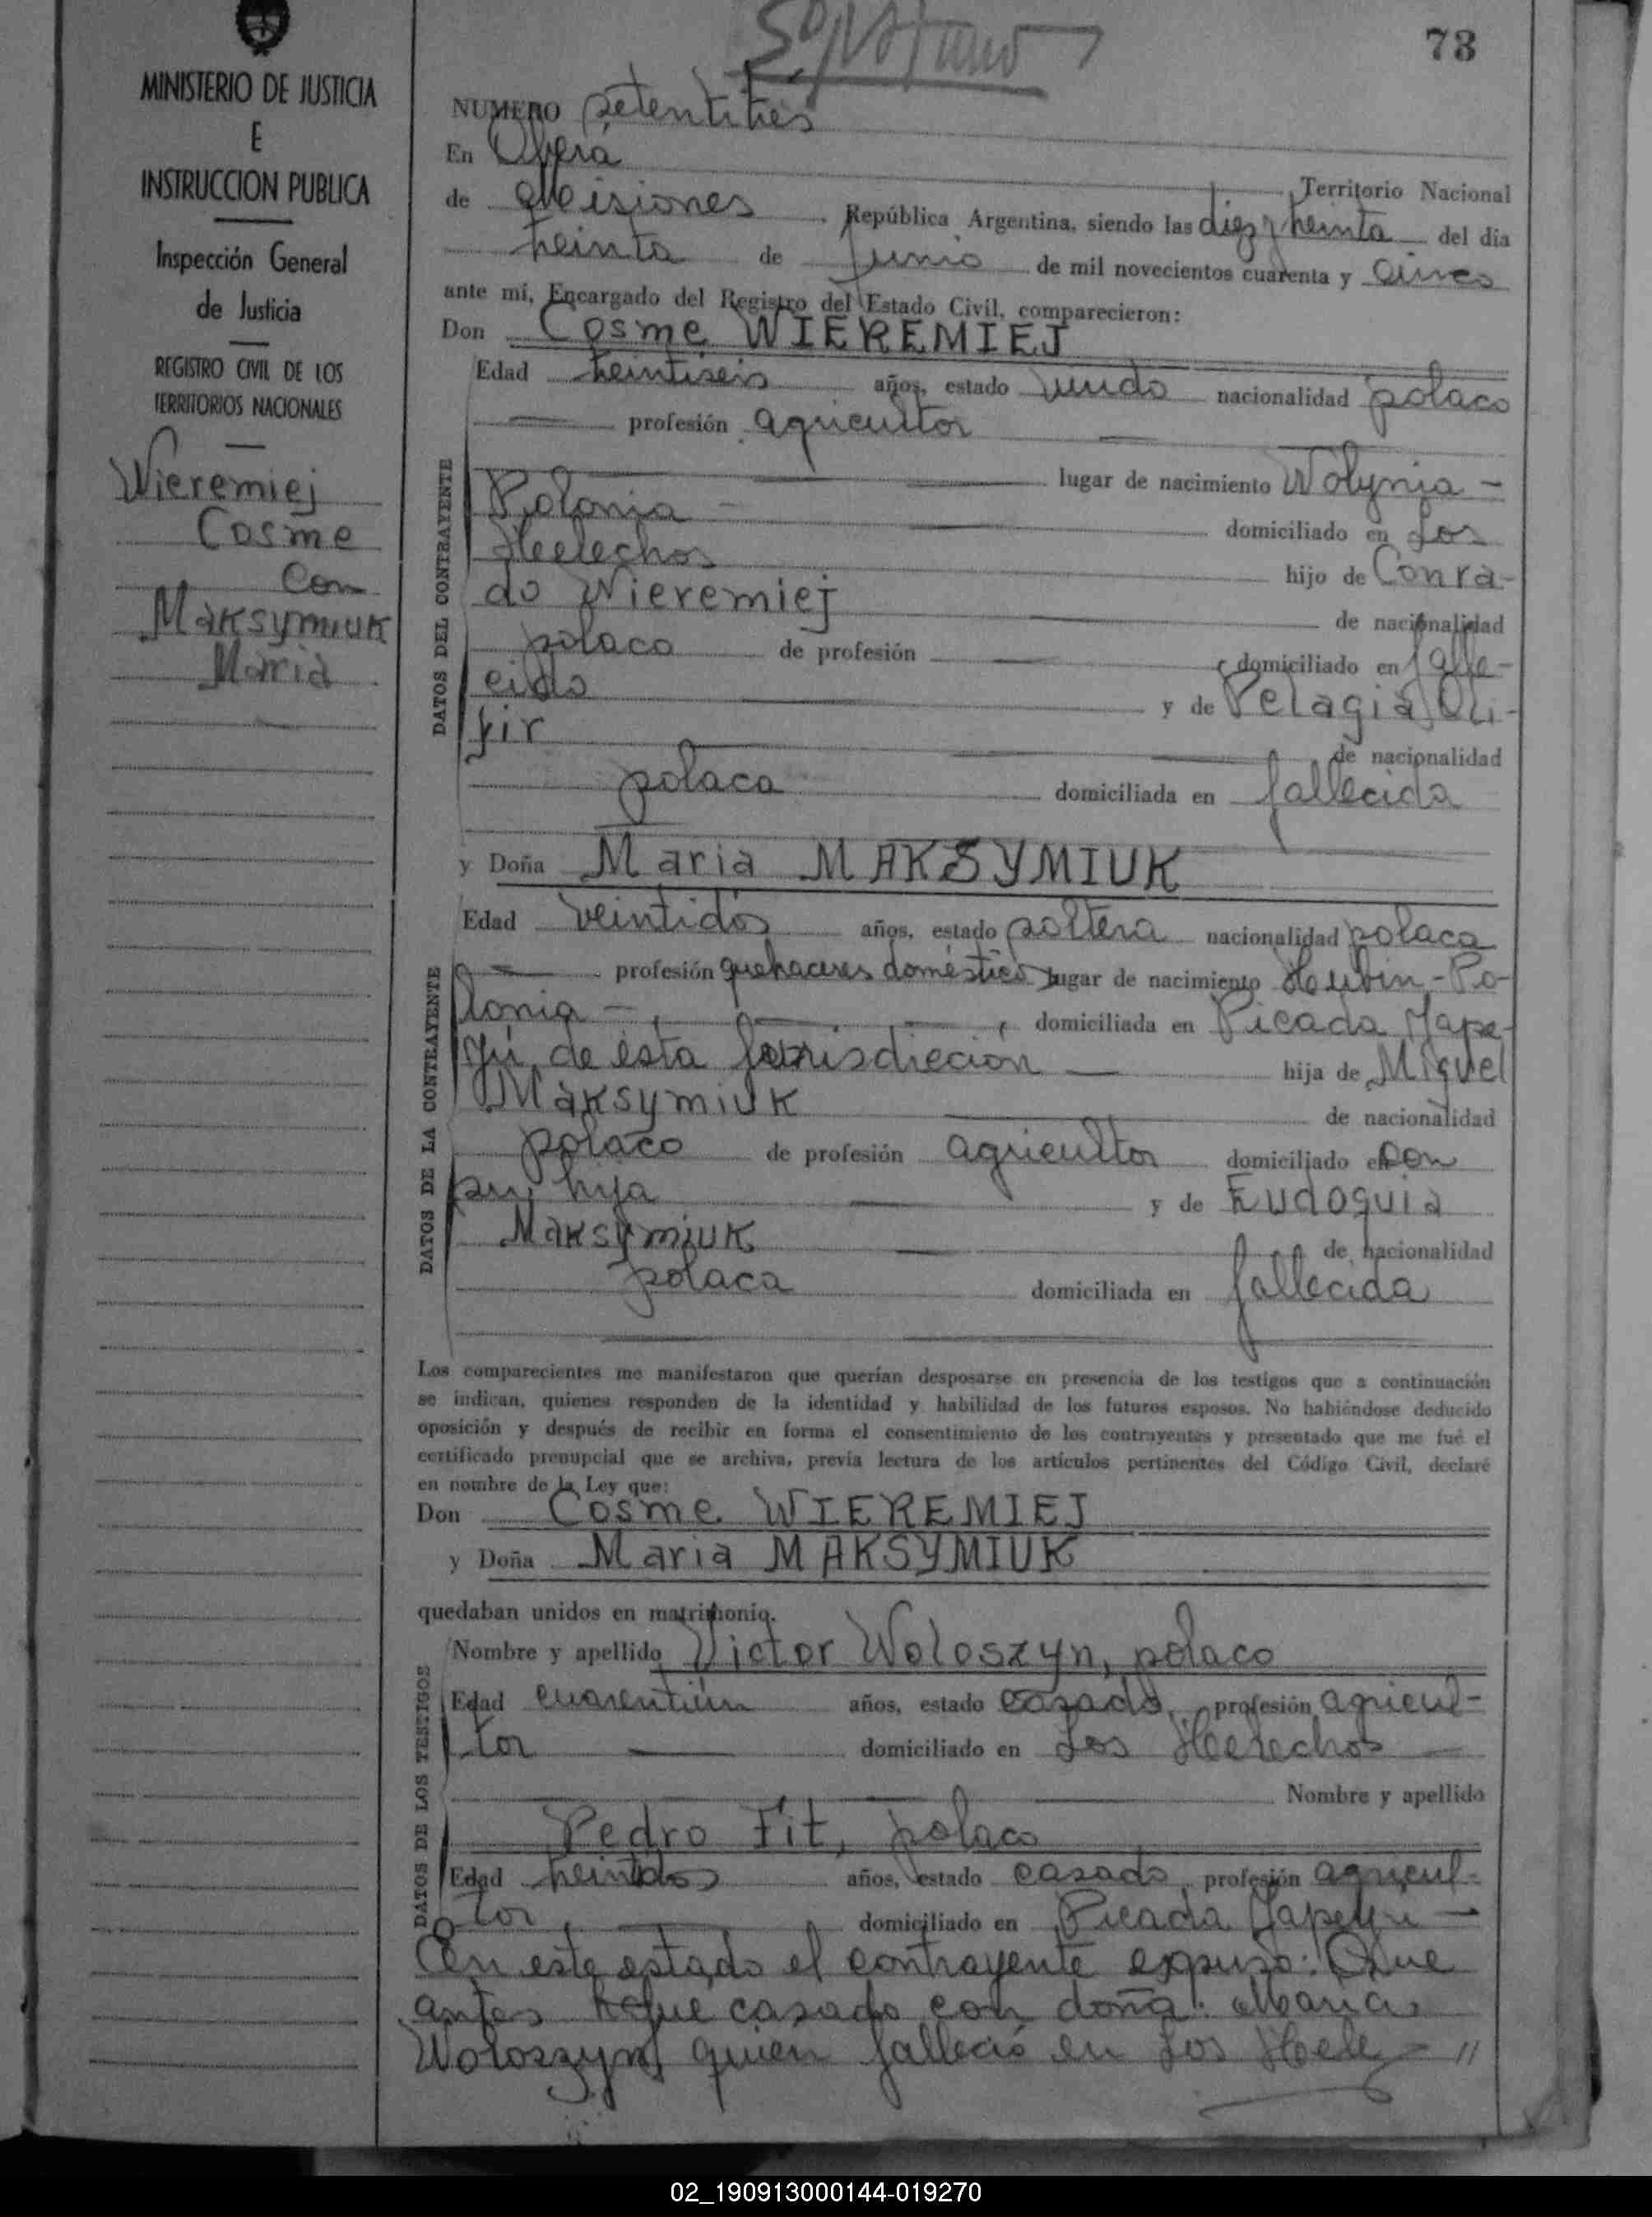 73
MINISTERIO DE JUSTICIA
E
INSTRUCCION PUBLICA
Inspección General
de Justicia
REGISTRO CIVIL DE LOS
TERRITORIOS NACIONALES
Wieremiej
Cosme
con
Maksymiuk
Maria
NUMERO setentitrés
En Oberá
Territorio Nacional
de Misiones República Argentina, siendo las diez y treinta del dia
treinta de junio de mil novecientos cuarenta y cinco
ante mí, Encargado del Registro del Estado Civil, comparecieron:
Don Cosme WIEREMIEJ
DATOS DEL CONTRAYENTE
Edad treintiseis años, estado viudo nacionalidad polaco
profesión agricultor
lugar de nacimiento Wolynia -
Polonia - domiciliado en Los
Helechos hijo de Conra-
do Wieremiej de nacionalidad
polaco de profesión domiciliado en falle-
cido y de Pelagia
de nacionalidad
polaca domiciliada en fallecida
y Doña Maria MAKSYMIUK
DATOS DE LA CONTRAYENTE
Edad veintidós años, estado soltera nacionalidad polaca
profesión quehaceres domésticos lugar de nacimiento Po-
lonia - domiciliada en Picada Yape-
yú, de esta jurisdicción hija de Miguel
Maksymiuk de nacionalidad
polaco de profesión agricultor domiciliado en con
su hija y de Eudoquia
Maksymiuk de nacionalidad
polaca domiciliada en fallecida
Los comparecientes me manifestaron que querían desposarse en presencia de los testigos que a continuación
se indican, quienes responden de la identidad y habilidad de los futuros esposos. No habiéndose deducido
oposición y después de recibir en forma el consentimiento de los contrayentes y presentado que me fué el
certificado prenupcial que se archiva, previa lectura de los artículos pertinentes del Código Civil, declaré
en nombre de la Ley que:
Don Cosme WIEREMIEJ
y Doña Maria MAKSYMIUK
quedaban unidos en matrimonio.
DATOS DE LOS TESTIGOS
Nombre y apellido Victor Woloszyn, polaco
Edad cuarentiún años, estado casado, profesión agricul-
tor domiciliado en Los Helechos
Nombre y apellido
Pedro Fit, polaco
Edad años, estado casado, profesión agricul-
tor, domiciliado en Picada Yapeyú -
En este estado el contrayente expuso: Que
antes fué casado con doña: Maria
Woloszyn, quien falleció en Los Hele- //
02_190913000144-019270